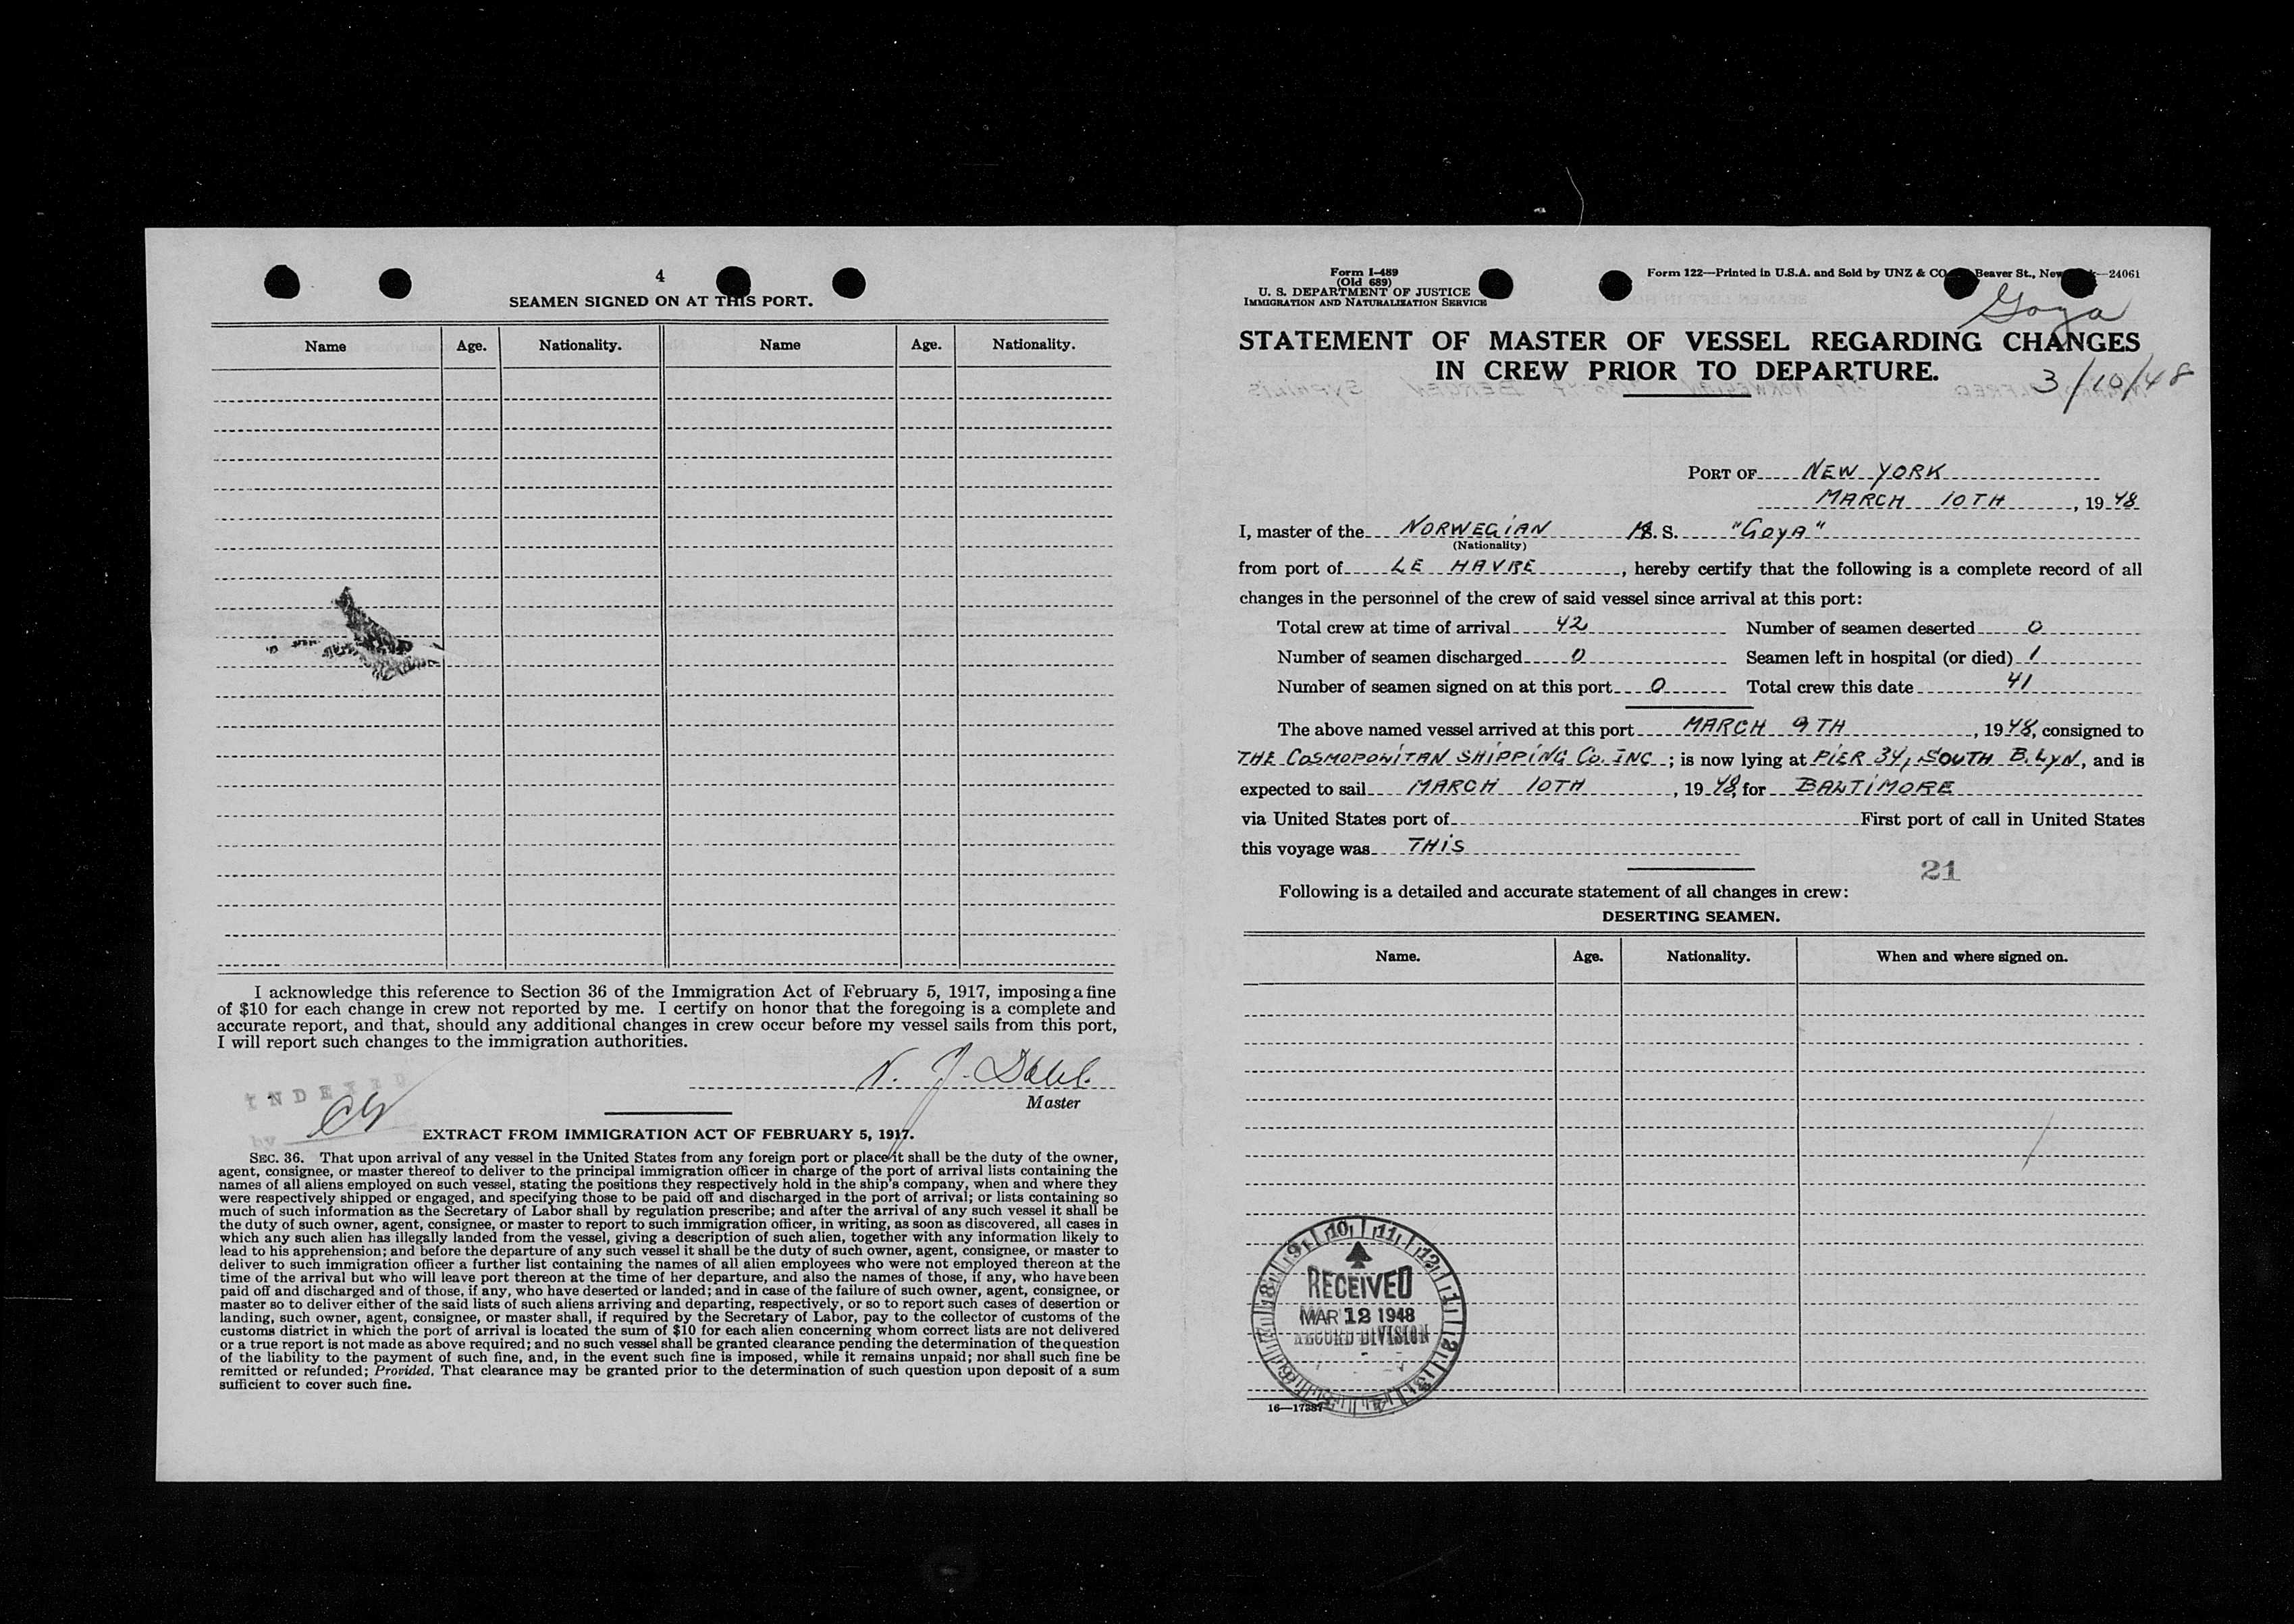 4
SEAMEN SIGNED ON AT THIS PORT.
Name Age. Nationality. Name Age. Nationality.
I acknowledge this reference to Section 36 of the Immigration Act of February 5, 1917, imposing a fine
of $10 for each change in crew not reported by me. I certify on honor that the foregoing is a complete and
accurate report, and that, should any additional changes in crew occur before my vessel sails from this port,
I will report such changes to the immigration authorities.
N. J. Dahl.
Master
INDEXED
by
EXTRACT FROM IMMIGRATION ACT OF FEBRUARY 5, 1917.
SEC. 36. That upon arrival of any vessel in the United States from any foreign port or place it shall be the duty of the owner,
agent, consignee, or master thereof to deliver to the principal immigration officer in charge of the port of arrival lists containing the
names of all aliens employed on such vessel, stating the positions they respectively hold in the ship's company, when and where they
were respectively shipped or engaged, and specifying those to be paid off and discharged in the port of arrival; or lists containing so
much of such information as the Secretary of Labor shall by regulation prescribe; and after the arrival of any such vessel it shall be
the duty of such owner, agent, consignee, or master to report to such immigration officer, in writing, as soon as discovered, all cases in
which any such alien has illegally landed from the vessel, giving a description of such alien, together with any information likely to
lead to his apprehension; and before the departure of any such vessel it shall be the duty of such owner, agent, consignee, or master to
deliver to such immigration officer a further list containing the names of all alien employees who were not employed thereon at the
time of the arrival but who will leave port thereon at the time of her departure, and also the names of those, if any, who have been
paid off and discharged and of those, if any, who have deserted or landed; and in case of the failure of such owner, agent, consignee, or
master so to deliver either of the said lists of such aliens arriving and departing, respectively, or so to report such cases of desertion or
landing, such owner, agent, consignee, or master shall, if required by the Secretary of Labor, pay to the collector of customs of the
customs district in which the port of arrival is located the sum of $10 for each alien concerning whom correct lists are not delivered
or a true report is not made as above required; and no such vessel shall be granted clearance pending the determination of the question
of the liability to the payment of such fine, and, in the event such fine is imposed, while it remains unpaid; nor shall such fine be
remitted or refunded; Provided, That clearance may be granted prior to the determination of such question upon deposit of a sum
sufficient to cover such fine.
Form I-489
(Old 689)
U. S. DEPARTMENT OF JUSTICE
IMMIGRATION AND NATURALIZATION SERVICE
Form 122—Printed in U.S.A. and Sold by UNZ & CO Beaver St., New 24061
Goya
STATEMENT OF MASTER OF VESSEL REGARDING CHANGES
IN CREW PRIOR TO DEPARTURE.
3/10/48
PORT OF NEW YORK
MARCH 10TH, 1948
I, master of the NORWEGIAN M. S. "GOYA"
(Nationality)
from port of LE HAVRE, hereby certify that the following is a complete record of all
changes in the personnel of the crew of said vessel since arrival at this port:
Total crew at time of arrival 42 Number of seamen deserted 0
Number of seamen discharged 0 Seamen left in hospital (or died) 1
Number of seamen signed on at this port 0 Total crew this date 41
The above named vessel arrived at this port MARCH 9TH, 1948, consigned to
THE COSMOPOLITAN SHIPPING CO. INC; is now lying at PIER 34, SOUTH B.LYN, and is
expected to sail MARCH 10TH, 1948, for BALTIMORE
via United States port of First port of call in United States
this voyage was THIS
21
Following is a detailed and accurate statement of all changes in crew:
DESERTING SEAMEN.
Name. Age. Nationality. When and where signed on.
10 11 12 1 2 3 4 5 6 7 8 9
RECEIVED
MAR 12 1948
RECORD DIVISION
16—17387